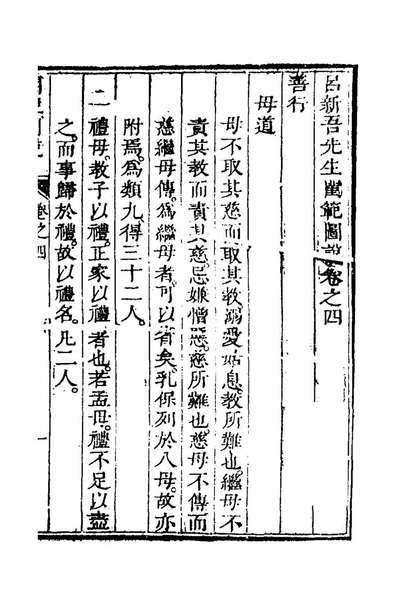 呂新吾先生閨範圖說卷之四
善行
母道
母不取其慈而取其教溺愛姑息教所難也繼母不
責其教而責其慈忌嫌憎惡慈所難也慈母不傳而
慈繼母傳為繼母者可以省矣乳保列於八母故亦
附焉為類九得三十二人
二禮母教子以禮正家以禮者也若孟母禮不足以盡
之而事歸於禮故以禮名凡二人
卷之四
一